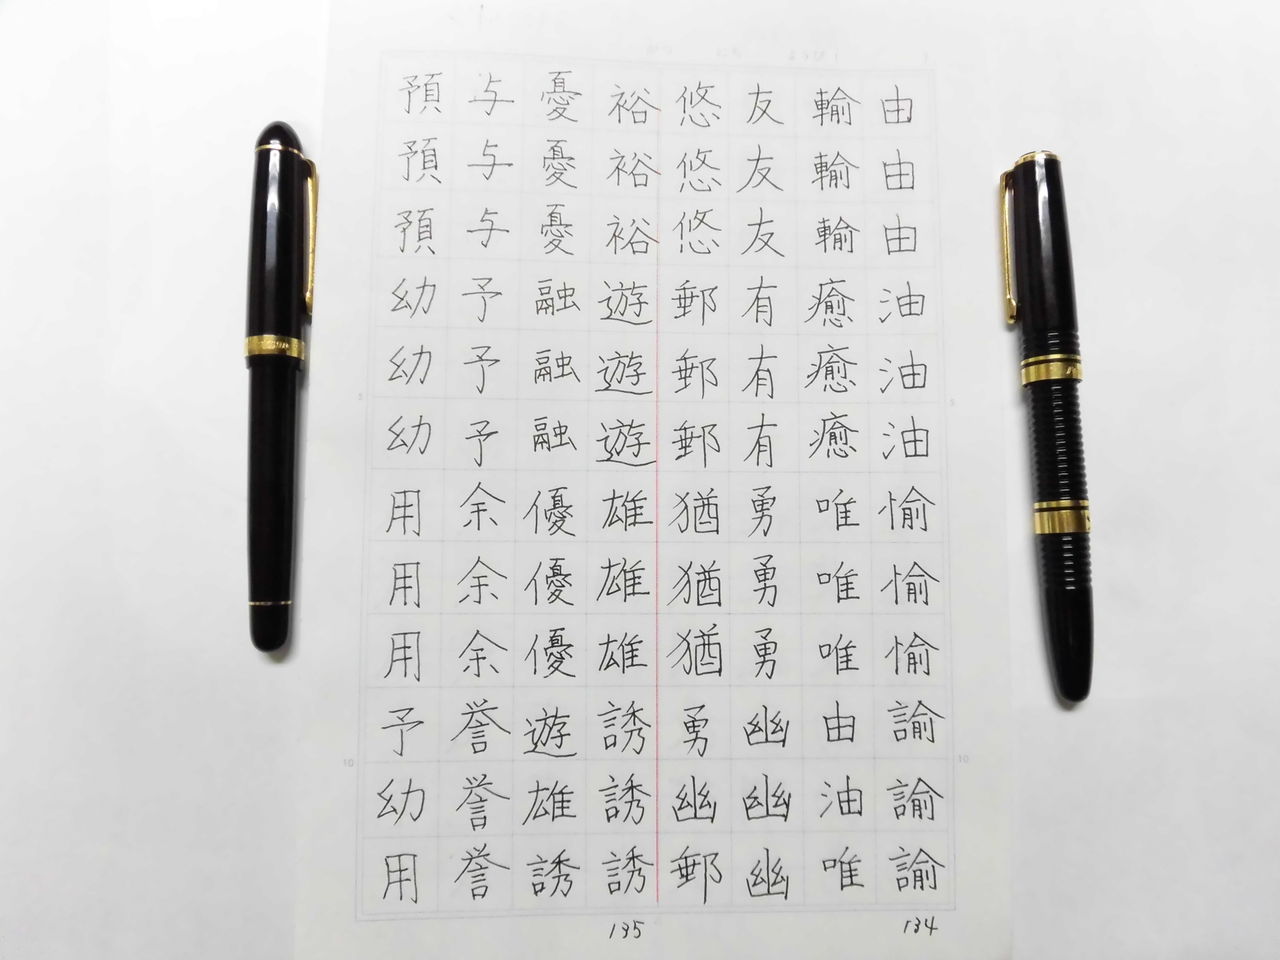 由由由油油油愉愉愉諭諭諭
輸輸輸癒癒癒唯唯唯由油唯
友友友有有有勇勇勇幽幽幽
悠悠悠郵郵郵猶猶猶勇幽郵
134
裕裕裕遊遊遊雄雄雄誘誘誘
憂憂憂融融融優優優遊雄誘
与与与予予予余余余誉誉誉
預預預幼幼幼用用用予幼用
135
5
10
5
10